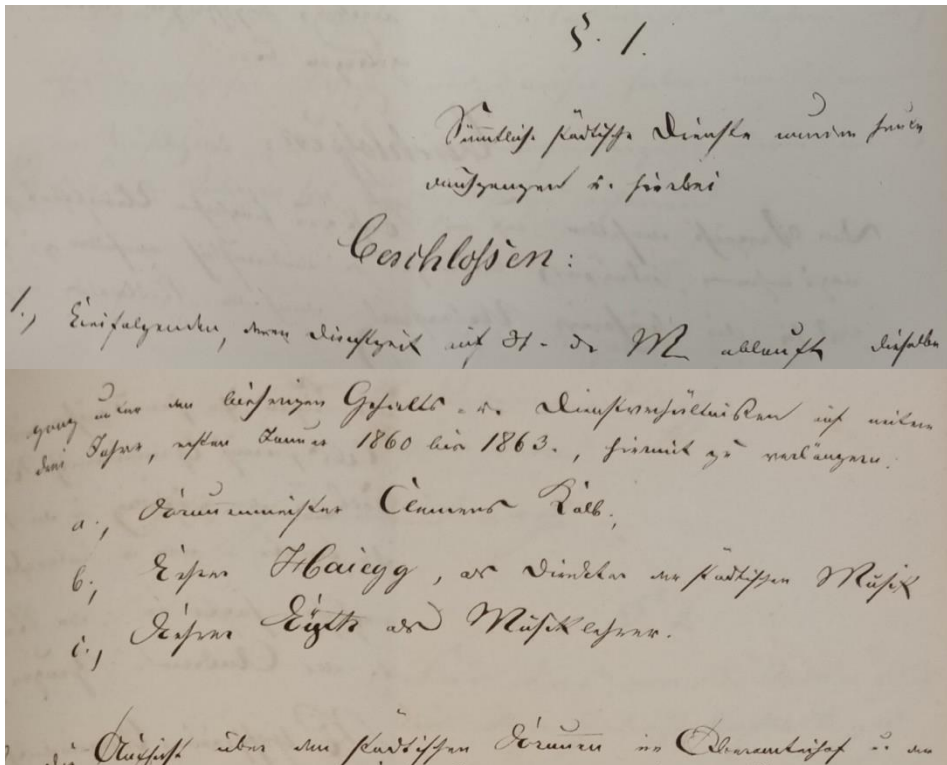 §. 1.
Sämmtliche städtische Dienste wurden heute
durchgangen u. hierbei
Beschlossen:
1., deren Dienstzeit auf 31. d. M. ablauft, dieselbe
ganz unter den bisherigen Gehalts u. Dienstverhältnißen auf weitere
drei Jahre, ersten Januar 1860 bis 1863., hiermit zu verlängern.
a., Brunnenmeister Clemens Kalb.,
b., Lehrer Haiegg, als Direktor der städtischen Musik
c., Lehrer als Musiklehrer.
die Aufsicht über den städtischen Brunnen im Oberamteihof u. den